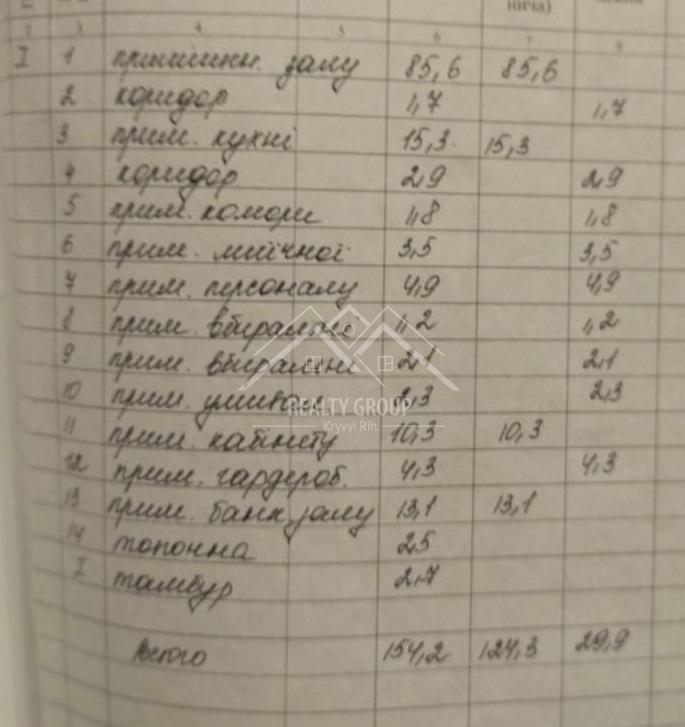 нича)
2 3 4 5 6 7 8
I 1 приміщен. залу 85,6 85,6
2 коридор 1,7 1,7
3 прим. кухні 15,3 15,3
4 коридор 2,9 2,9
5 прим. комори 1,8 1,8
6 прим. мийчної 3,5 3,5
7 прим. персоналу 4,9 4,9
8 прим. вбиральні 1,2 1,2
9 прим. вбиральні 2,1 2,1
10 прим. 2,3 2,3
REALTY GROUP
Kryvyi Rih
11 прим. кабінету 10,3 10,3
12 прим. гардероб. 4,3 4,3
13 прим. банк. залу 13,1 13,1
14 топочна 2,5
I тамбур 2,7
Всього 154,2 124,3 29,9